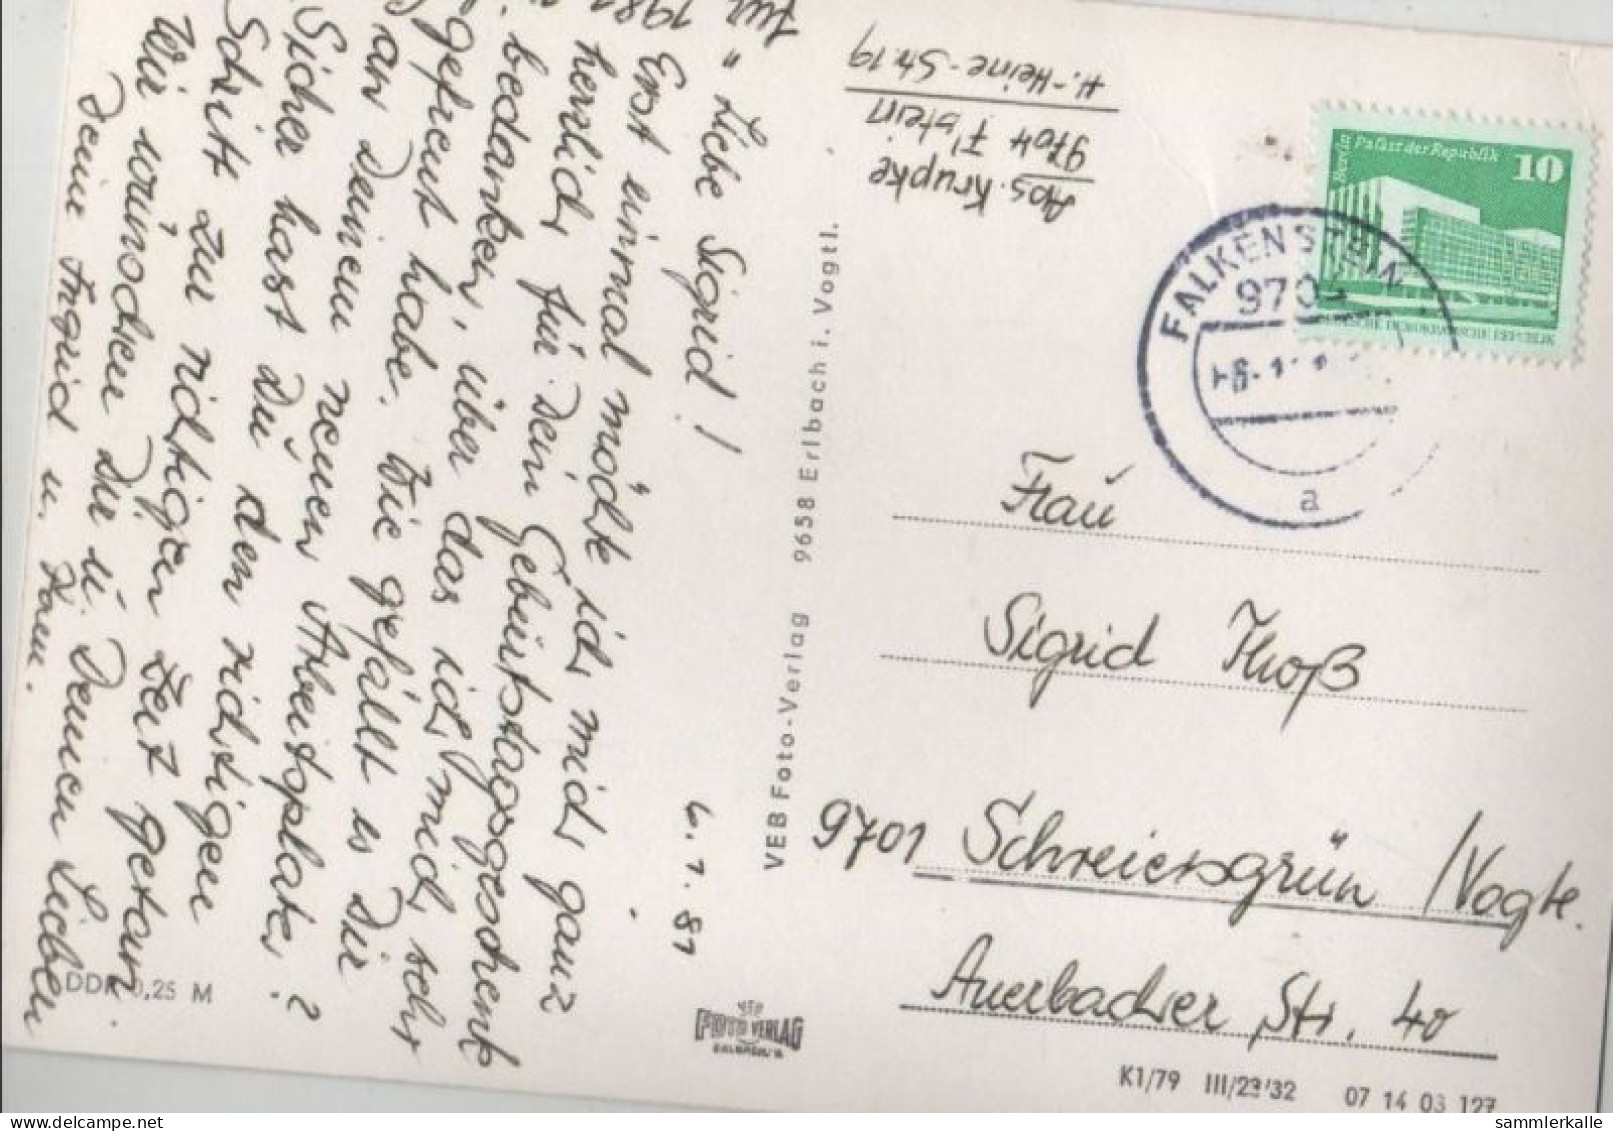 6. 1. 81
Liebe Sigrid!
Erst einmal möchte ich mich ganz
herzlich für Dein Geburtstagsgeschenk
bedanken, über das ich mich sehr
gefreut habe. Wie gefällt es Dir
an Deinem neuen Arbeitsplatz?
Sicher hast Du den richtigen
Schritt zur richtigen Zeit getan.
Wir wünschen Dir u. Deinen Lieben
Deine Ingrid u. Fam.
für
1981
DDR 0,25 M
VEB Foto-Verlag 9658 Erlbach i. Vogtl.
FOTO VERLAG
Abs. Krupke
9704 F'stein
H.-Heine-Str. 19
Berlin Palast der Republik 10
FALKENSTEIN
970
a
Frau
Sigrid Thoß
9701 Schreiersgrün /Vogtl.
Auerbacher Str. 40
K1/79 III/23/32 07 14 03 127
sammlerkalle